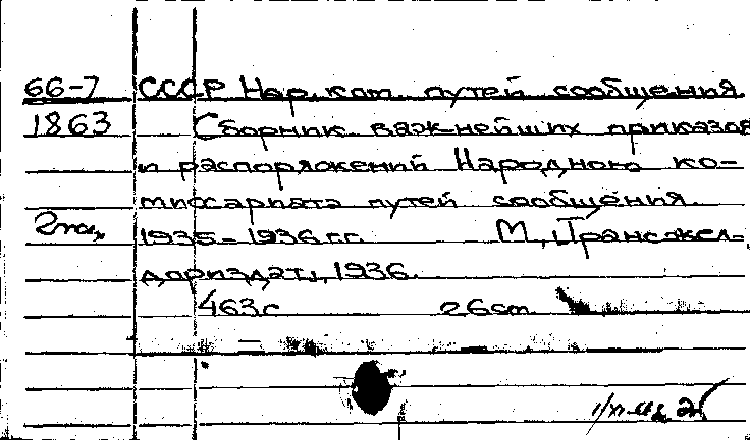 66-7 СССР Нар. ком. путей сообщения.
1863 Сборник важнейших приказов
и распоряжений Народного ко-
миссариата путей сообщения.
2 экз. 1935-1936 г.г. М., "Трансжел-
дориздат", 1936.
463 с 26 cm